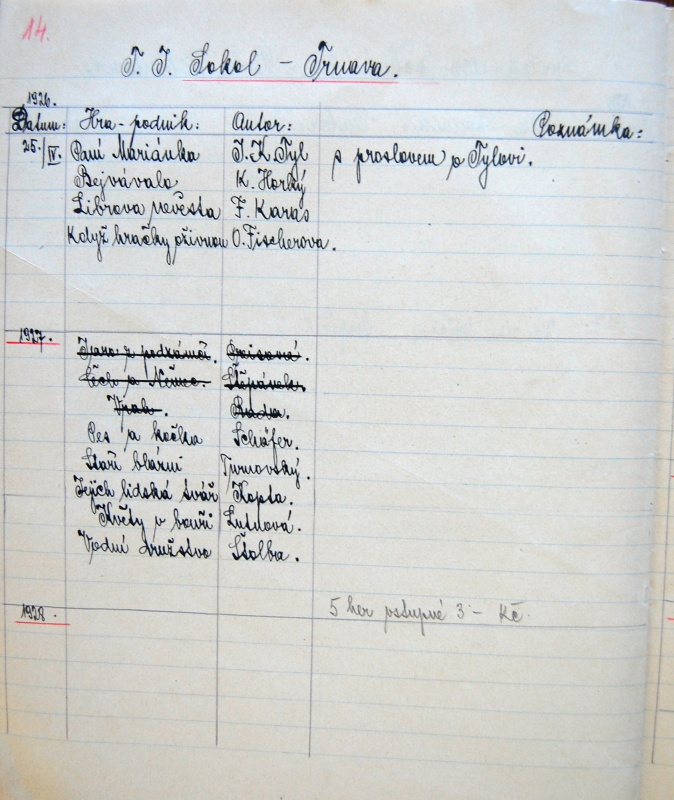 14.
T. J. Sokol - Trnava.
1926.
Datum: Hra-podnik: Autor: Poznámka:
25./IV. Paní Mariánka J.K.Tyl s proslovem o Tylovi.
Bejvávalo K. Horký
Librova nevěsta F. Karas
Když hračky ožívnou O.Fischerova.
1927.
z podzámčí.
Čech a Němec. Štěpánek.
Vrah. Bada.
Pes a kočka Schäfer.
Staří blázni Turnovský.
Jejich lidská tvář Kopta.
Květy v bouři Lutnová.
Vodní družstvo Štolba.
1928. 5 her vstupné 3- Kč.